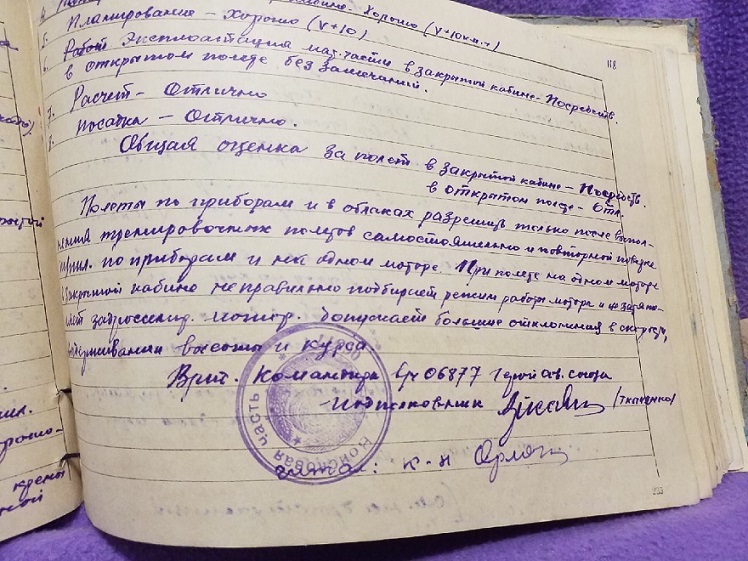 кабине - Хорошо (V+10км.ч)
5. Планирование - Хорошо (V+10)
6. Работ Эксплоатация мат.части в закрытой кабине - Посредств.
в открытом полете без замечаний.
7. Расчет - Отлично
8. Посадка - Отлично.
Общая оценка за полет в закрытой кабине - Посредств.
в открытом полете - Отл.
Полеты по приборам и в облаках разрешить только после выпол-
нения тренировочных полетов самостоятельно и повторной поверке
по приборам и на одном моторе. При полете на одном моторе
в закрытой кабине неправильно подбирает режим работы мотора и не
мотор. Допускает большие отклонения в скорости,
выдерживании высоты и курса.
Врит. Командира в/ч 06877 Герой Сов. Союза
подполковник (Ткаченко)
читал: к-н Орлов
Войсковая часть
118
кдены